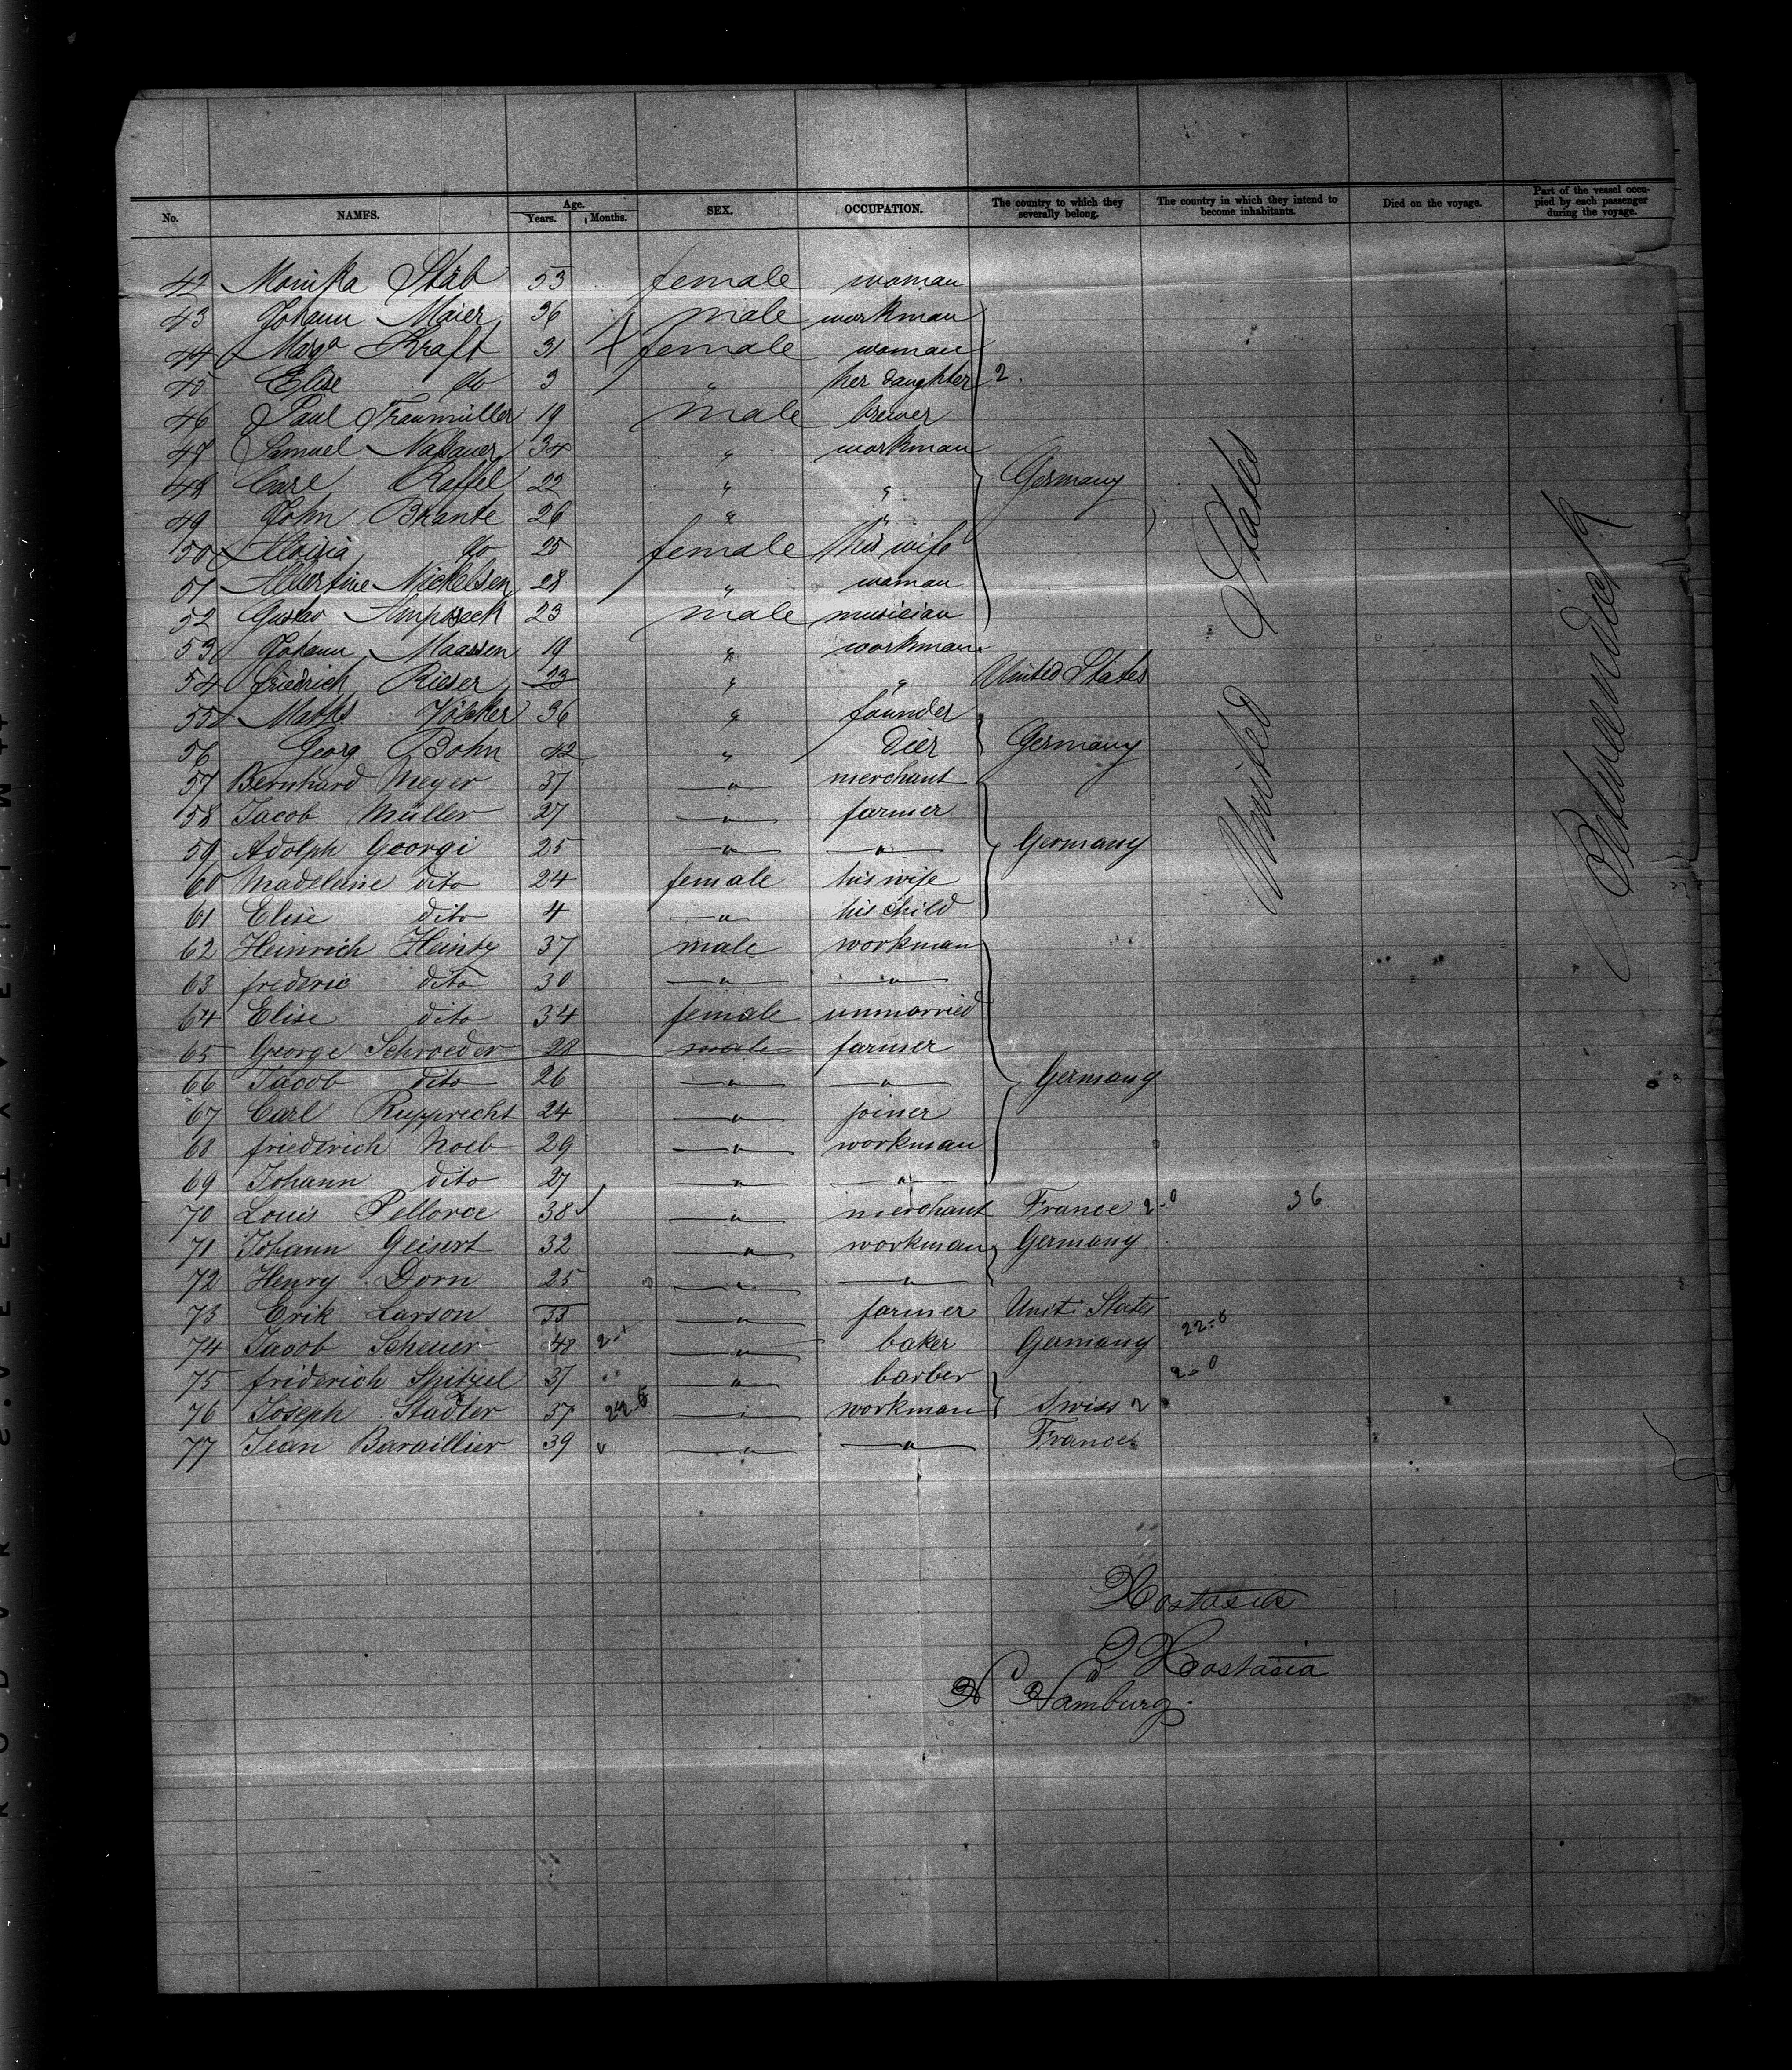 No. NAMES. Age. Years. Months. SEX. OCCUPATION. The country to which they severally belong. The country in which they intend to become inhabitants. Died on the voyage. Part of the vessel occupied by each passenger during the voyage.
42 Monika Stäb 53 female woman
43 Johann Maier 36 male workman
44 Marga Kraft 31 female woman
45 Elise do 3 " her daughter 2.
46 Paul Traumüller 19 male brewer
47 Samuel Nassauer 34 " workman
48 Carl Raffel 22 " " Germany
49 John Brante 26 " "
50 Aloisia do 25 female his wife
51 Albertine Nickelsen 28 " woman
52 Gustav 23 male musician
53 Johann Maassen 19 " workman
54 Friedrich Rieser 23 " " United States
55 Maths Völcker 36 " founder
56 Georg Bohn 42 " dier Germany
57 Bernhard Meyer 37 " merchant
58 Jacob Müller 27 " farmer
59 Adolph Georgi 25 " " Germany
60 Madeleine dito 24 female his wife
61 Elise dito 4 " his child
62 Heinrich Heintz 37 male workman
63 frederic dito 30 " "
64 Elise dito 34 female unmarried
65 George Schroeder 28 male farmer
66 Jacob dito 26 " " Germany
67 Carl Rupprecht 24 " joiner
68 friederich Noeb 29 " workman
69 Johann dito 27 " "
70 Louis Pellorce 38 " merchant France 2-0 36
71 Johann Geisert 32 " workman Germany
72 Henry Dorn 25 " "
73 Erik Larson 33 " farmer Unit. States
74 Jacob Scheuer 48 " baker Germany 22-8
75 friderich Spitzel 37 " barber 2-0
76 Joseph Stadler 37 " workman Swiss 2
77 Jean Baraillier 39 " " France
United States
Betweendeck
Hostasia
Hostasia
Hamburg.